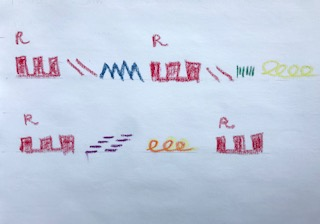 R R
R R